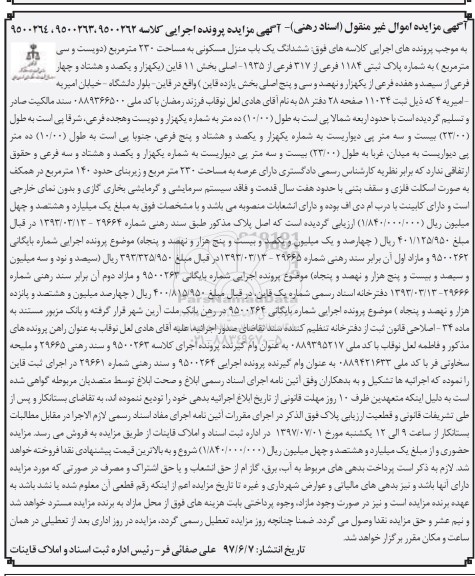 آگهی مزایده اموال غیر منقول (اسناد رهنی)- آگهی مزایده پرونده اجرایی کلاسه ۹۵۰۰۲۶۲، ۹۵۰۰۲۶۳، ۹۵۰۰۲۶۴
به موجب پرونده های اجرایی کلاسه های فوق: ششدانگ یک باب منزل مسکونی به مساحت ۲۳۰ مترمربع (دویست و سی
مترمربع ) به شماره پلاک ثبتی ۱۱۸۴ فرعی از ۳۱۷ فرعی از ۱۹۳۵- اصلی بخش ۱۱ قاین (یکهزار و یکصد و هشتاد و چهار
فرعی از سیصد و هفده فرعی از یکهزار و نهصد و سی و پنج اصلی بخش یازده قاین ) واقع در قاین- بلوار دانشگاه - خیابان امیریه
-امیریه ۴ که ذیل ثبت ۱۱۰۳۴ صفحه ۲۸ دفتر ۵۸ به نام آقای هادی لعل نوقاب فرزند رمضان با کد ملی ۰۸۸۹۳۶۶۵۰۰ سند مالکیت صادر
و تسلیم گردیده است با حدود اربعه شمالا پی است به طول (۱۰/۰۰) ده متر به شماره یکهزار و دویست و هجده فرعی، شرقا پی است به طول
(۲۳/۰۰) بیست و سه متر پی دیواریست به شماره یکهزار و یکصد و هشتاد و پنج فرعی، جنوبا پی است به طول (۱۰/۰۰) ده متر
پی دیواریست به میدان، غربا به طول (۲۳/۰۰) بیست و سه متر پی دیواریست به شماره یکهزار و یکصد و هشتاد و سه فرعی و حقوق
ارتفاقی ندارد که برابر نظریه کارشناس رسمی دادگستری دارای عرصه به مساحت ۲۳۰ متر مربع و زیربنای حدود ۱۴۰ مترمربع در همکف
به صورت اسکلت فلزی و سقف بتنی با حدود هفت سال قدمت و فاقد سیستم سرمایشی و گرمایشی بخاری گازی و بدون نمای خارجی
است و دارای کابینت با درب ام دی اف بوده و دارای انشعابات منصوبه می باشد و با مشخصات فوق به مبلغ یک میلیارد و هشتصد و چهل
میلیون ریال (۱/۸۴۰/۰۰۰/۰۰۰) ارزیابی گردیده است که اصل پلاک مذکور طبق سند رهنی شماره ۲۹۶۶۴ - ۱۳۹۳/۰۳/۱۳ در قبال
مبلغ ۴۰۱/۱۲۵/۹۵۰ ریال ( چهارصد و یک میلیون و یکصد و بیست و پنج هزار و نهصد و پنجاه) موضوع پرونده اجرایی شماره بایگانی
۹۵۰۰۲۶۲ و مازاد اول آن برابر سند رهنی شماره ۲۹۶۶۵ -۱۳۹۳/۰۳/۱۳در قبال مبلغ ۳۹۳/۳۲۵/۹۵۰ ریال (سیصد و نود و سه میلیون
و سیصد و بیست و پنج هزار و نهصد و پنجاه) موضوع پرونده اجرایی شماره بایگانی ۹۵۰۰۲۶۳ و مازاد دوم آن برابر سند رهنی شماره
۲۹۶۶۶-۱۳۹۳/۰۳/۱۳ دفترخانه اسناد رسمی شماره یک قاین در قبال مبلغ ۴۰۰/۸۱۵/۹۵۰ ریال ( چهارصد میلیون و هشتصد و پانزده
هزار و نهصد و پنجاه ) موضوع پرونده اجرایی شماره بایگانی ۹۵۰۰۲۶۴ در رهن بانک ملت آرین شهر قرار گرفته و بانک مزبور مستند به
ماده ۳۴- اصلاحی قانون ثبت از دفترخانه تنظیم کننده سند تقاضای صدور اجرائیه علیه آقای هادی لعل نوقاب به عنوان راهن پرونده های
مذکور و فاطمه لعل نوقاب با کد ملی ۰۸۸۹۳۹۵۲۱۷ به عنوان وام گیرنده پرونده اجرای کلاسه ۹۵۰۰۲۶۳ و سند رهنی ۲۹۶۶۵ و ملیحه
سخاوتی فر با کد ملی ۰۸۸۹۴۲۱۶۳۳ به عنوان وام گیرنده پرونده اجرایی ۹۵۰۰۲۶۴ و سند رهنی شماره ۲۹۶۶۱ در اجرای ثبت قاین
را نموده که اجرائیه ها تشکیل و به بدهکاران وفق آئین نامه اجرای اسناد رسمی ابلاغ و صحت ابلاغ توسط متصدیان مربوطه گواهی شده
است به دلیل اینکه متعهدین ظرف ۱۰ روز مهلت قانونی از تاریخ ابلاغ اجرائیه بدهی خود را تودیع ننموده اند، به تقاضای بستانکار و پس از
طی تشریفات قانونی و قطعیت ارزیابی پلاک فوق الذکر در اجرای مقررات آئین نامه اجرای مفاد اسناد رسمی لازم الاجرا در مقابل مطالبات
بستانکار از ساعت ۹ الی ۱۲ یکشنبه مورخ ۱۳۹۷/۰۷/۰۱ در اداره ثبت اسناد و املاک قاینات از طریق مزایده به فروش می رسد. مزایده
حضوری و از مبلغ یک میلیارد و هشتصد و چهل میلیون ریال (۱/۸۴۰/۰۰۰/۰۰۰) شروع و به بالاترین قیمت پیشنهادی نقدا فروخته خواهد
شد. لازم به ذکر است پرداخت بدهی های مربوط به آب، برق، گاز ام از حق انشعاب و یا حق اشتراک و مصرف در صورتی که مورد مزایده
دارای آنها باشد و نیز بدهی های مالیاتی و عوارض شهرداری و غیره تا تاریخ مزایده اعم از اینکه رقم قطعی آن معلوم شده یا نشد باشد به
عهده برنده مزایده است و نیز در صورت وجود مازاد، وجوه پرداختی بابت هزینه های فوق از محل مازاد به برنده مزایده مسترد خواهد شد
و نیم عشر و حق مزایده نقدا وصول می گردد. ضمنا چنانچه روز مزایده تعطیل رسمی گردد، مزایده در روز اداری بعد از تعطیلی در همان
ساعت و مکان مقرر برگزار خواهد شد.
تاریخ انتشار: ۹۷/۶/۷ علی صفائی فر - رئیس اداره ثبت اسناد و املاک قاینات